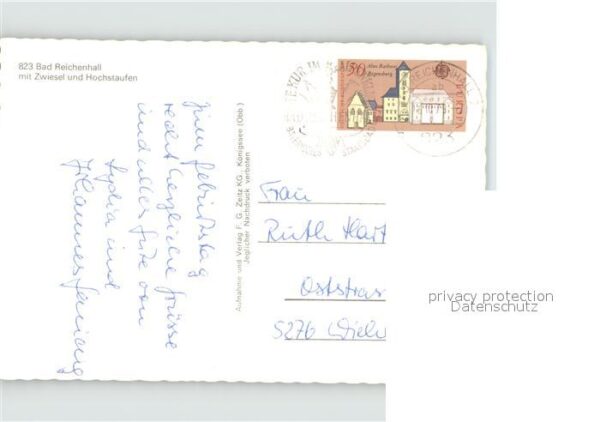 823 Bad Reichenhall
mit Zwiesel und Hochstaufen
Zum Geburtstag
recht herzliche Grüsse
und alles Gute von
Lydia und
Johannes
Aufnahme und Verlag F. G. Zeitz KG., Königssee (Obb.)
Jeglicher Nachdruck verboten
50
Altes Rathaus
Regensburg
EUROPA
KUR IM
REICHENHALL
823
Frau
Ruth Hart
Oststras
5276 Wieh
privacy protection
Datenschutz